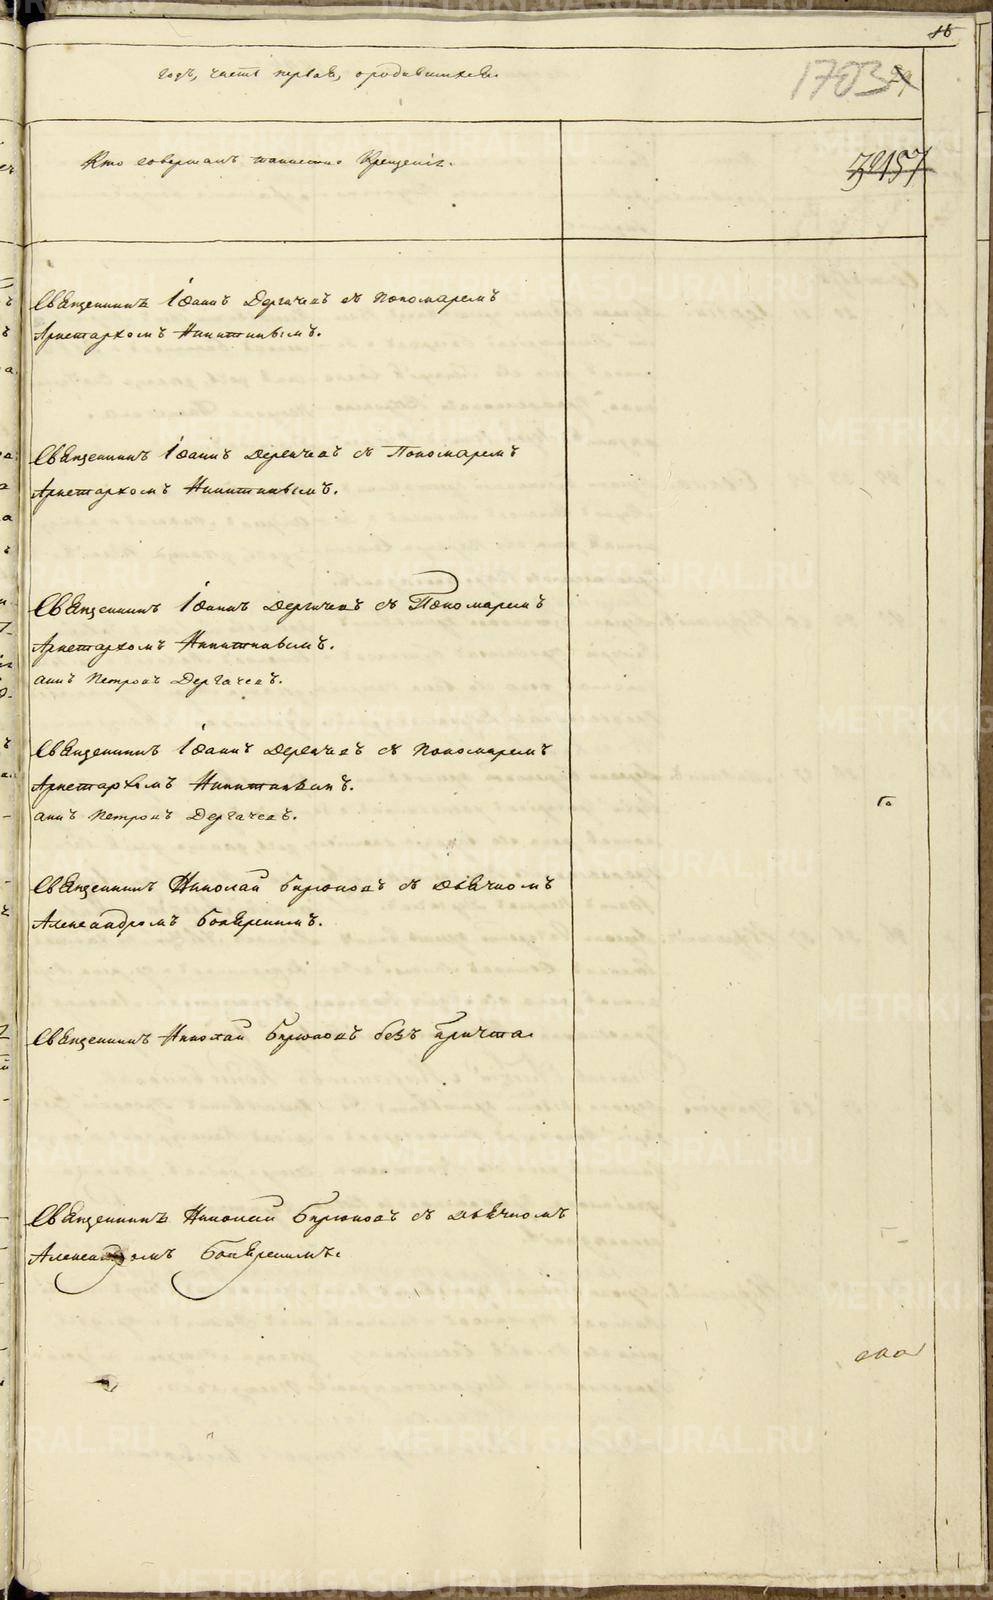 годъ, часть первая, о родившихся.
Кто совершалъ таинство Крещенія.
Священникъ Іоаннъ Дергачевъ съ пономаремъ
Аристархомъ Никитинымъ.
Священникъ Іоаннъ Дергачевъ съ Пономаремъ
Аристархомъ Никитинымъ.
Священникъ Іоаннъ Дергачевъ съ Пономаремъ
Аристархомъ Никитинымъ.
Петровъ Дергачевъ.
Священникъ Іоаннъ Дергачевъ съ пономаремъ
Аристархомъ Никитинымъ.
Петровъ Дергачевъ.
Священникъ Николай Бирюковъ съ дьячкомъ
Александромъ
Священникъ Николай Бирюковъ безъ причта.
Священникъ Николай Бирюковъ съ дьячкомъ
Александромъ
METRIKI.GASO-URAL.RU